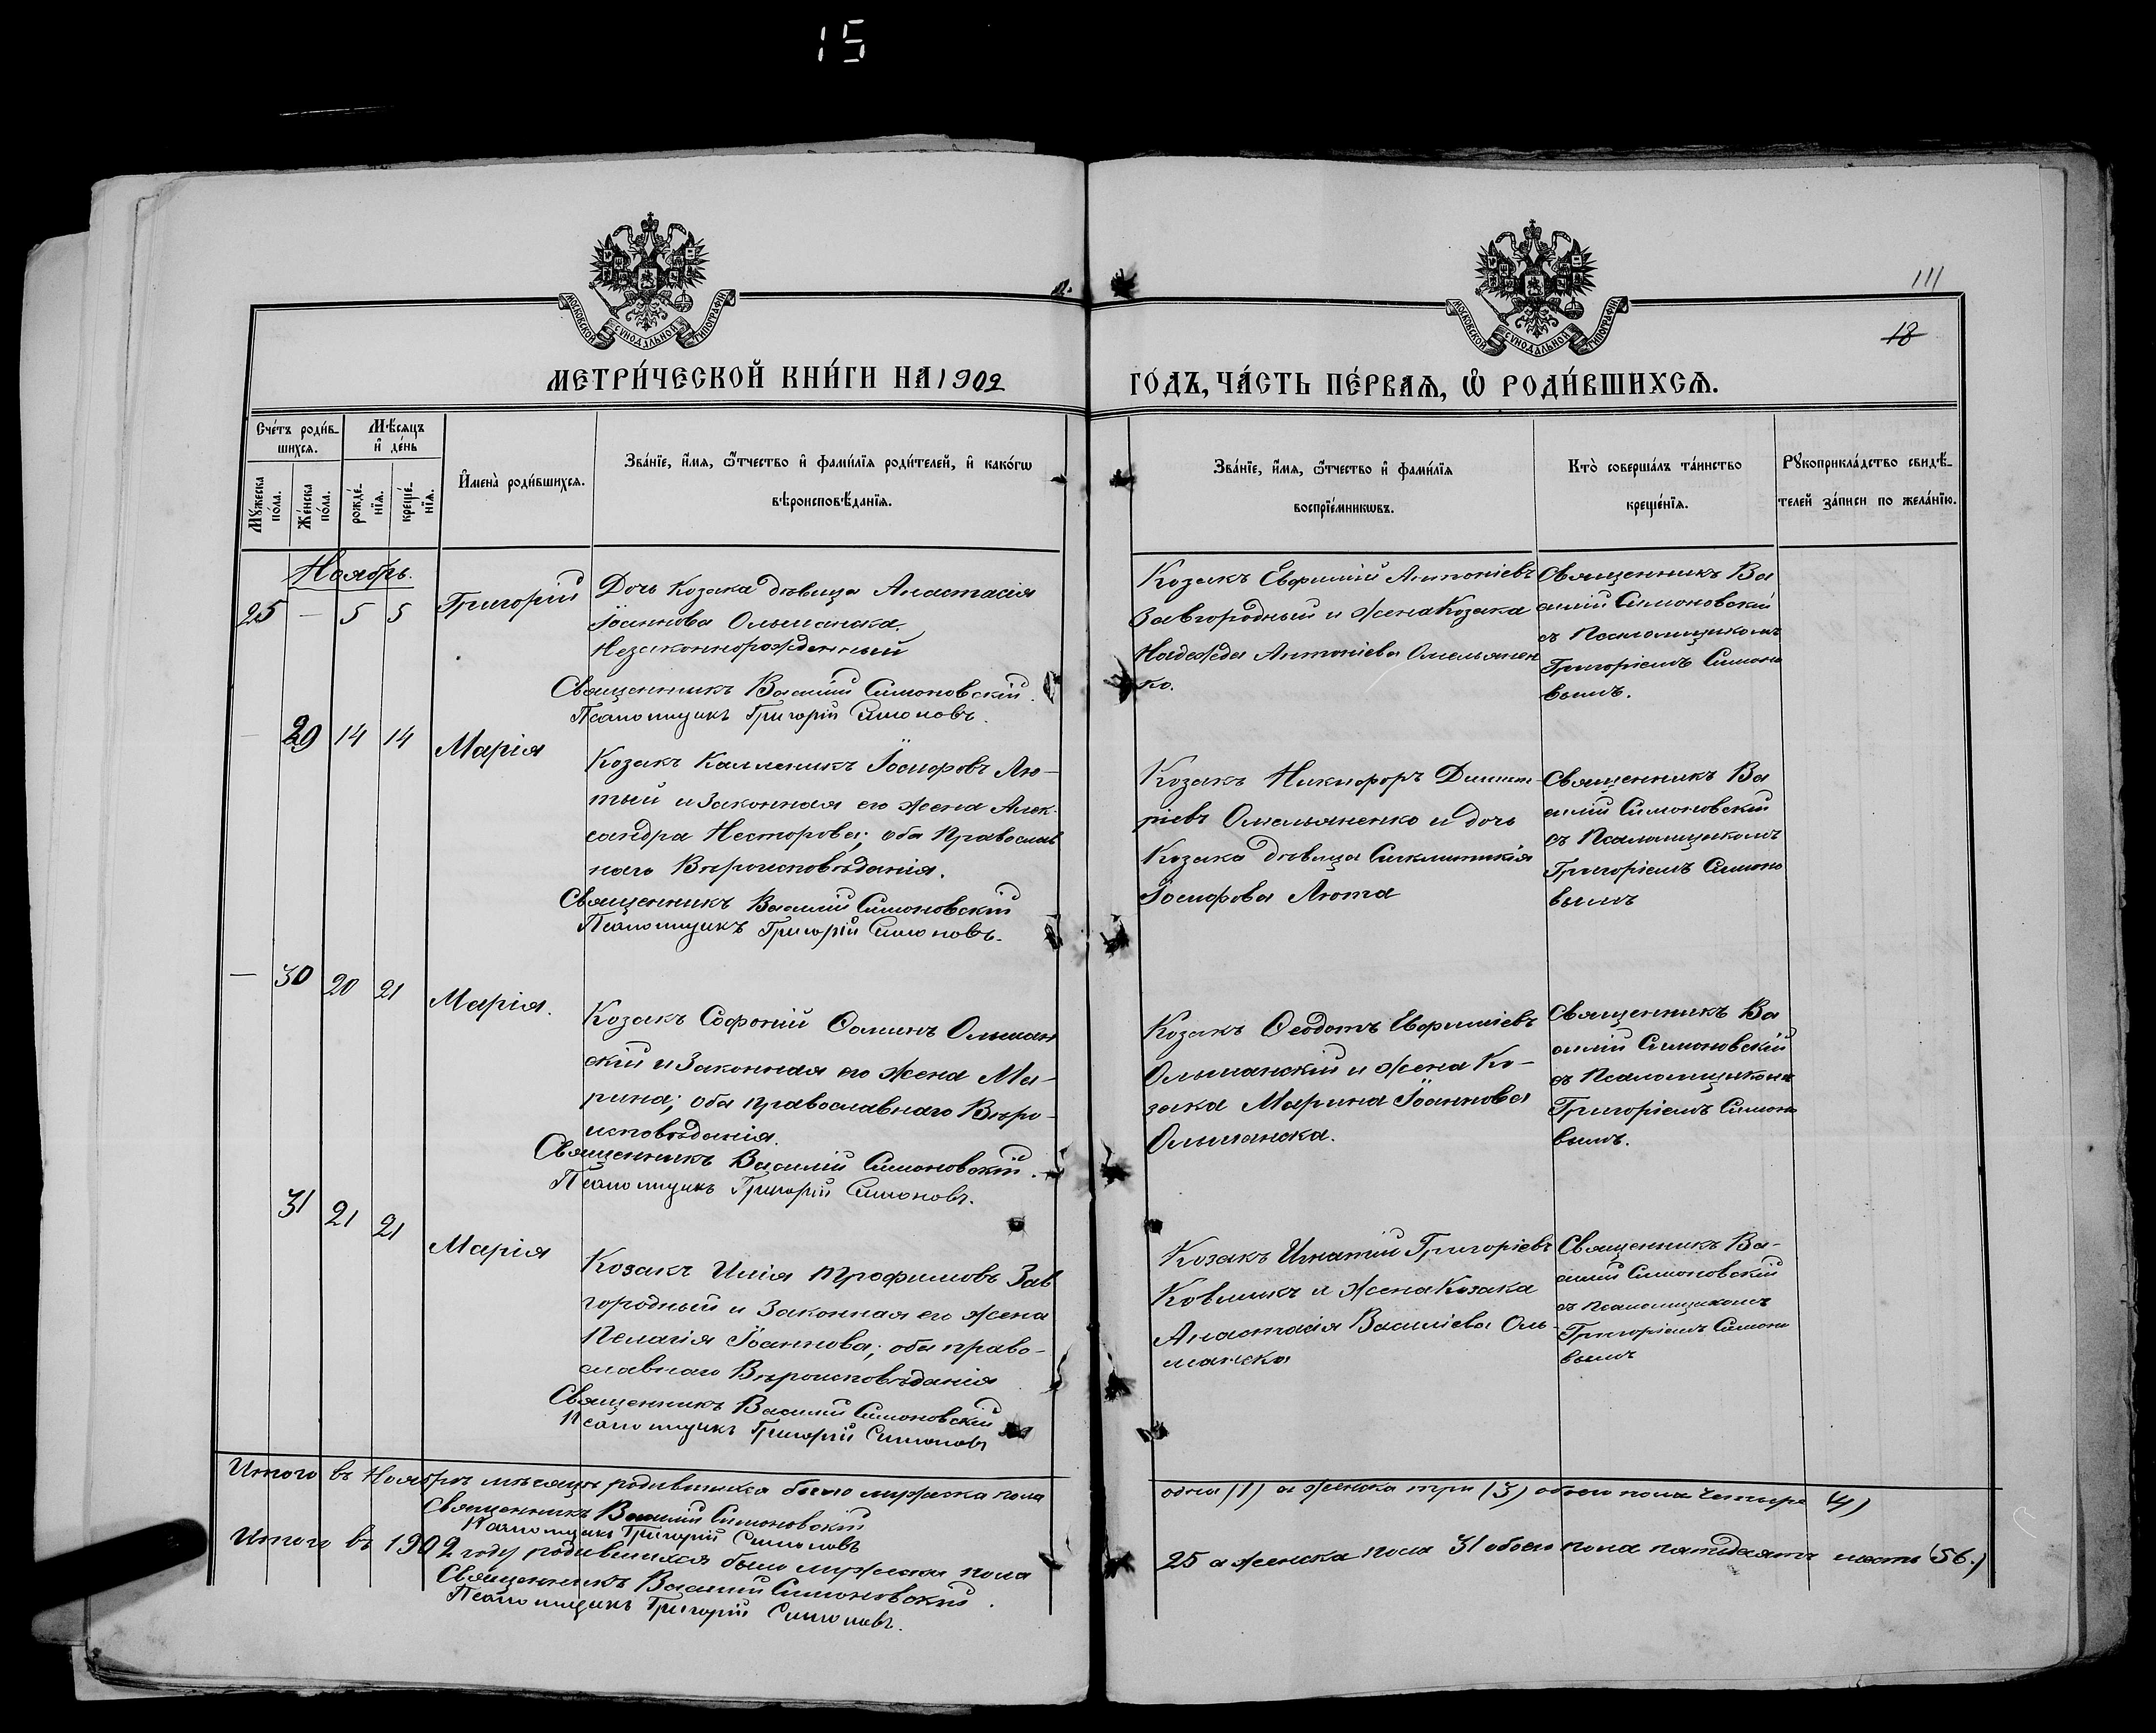 15
111
18
МОСКОВСКОЙ СѴНОДАЛЬНОЙ ТИПОГРАФІИ
МОСКОВСКОЙ СѴНОДАЛЬНОЙ ТИПОГРАФІИ
МЕТРИ́ЧЕСКОЙ КНИ́ГИ НА 1902
ГО́ДЪ, ЧА́СТЬ ПЕ́РВАѦ, Ѽ РОДИ́ВШИХСѦ.
Сче́тъ роди́в-
шихсѧ.
Мѣ́сѧцъ
и҆ де́нь
Мꙋ́жеска
по́ла.
Же́нска
по́ла.
рожде́-
нїѧ.
креще́-
нїѧ.
И҆мена̀ роди́вшихсѧ.
Зва́нїе, и҆́мѧ, ѻ҆́тчество и҆ фами́лїѧ роди́телей, и҆ како́гѡ
вѣроисповѣ́данїѧ.
Зва́нїе, и҆́мѧ, ѻ҆́тчество и҆ фами́лїѧ
воспрїе́мникѡвъ.
Кто̀ соверша́лъ та́инство
креще́нїѧ.
Рꙋкоприкла́дство свидѣ́-
телей за́писи по жела́нїю.
Ноябрь.
25 — 5 5 Григорій
Дочь Козака дѣвица Анастасія
Іоаннова Ольшанска.
Незаконнорожденный
Священникъ Василій Симоновскій.
Псаломщикъ Григорій Симоновъ.
Козакъ Евфимій Антоніевъ
Завгородный и жена Козака
Надежда Антоніева Омельянен
ко.
Священникъ Ва
силій Симоновскій
съ Псаломщикомъ
Григоріемъ Симоно
вымъ.
— 29 14 14 Марія
Козакъ Калленикъ Іосифовъ Лю-
тый и законная его жена Алек-
сандра Несторова; оба Православ
наго Вѣроисповѣданія.
Священникъ Василій Симоновскій
Псаломщикъ Григорій Симоновъ.
Козакъ Никифоръ Димит-
ріевъ Омельяненко и дочь
Козака дѣвица Синклитикія
Іосифова Люта
Священникъ Ва
силій Симоновскій
съ Псаломщикомъ
Григоріемъ Симоно
вымъ
— 30 20 21 Марія.
Козакъ Софоній Ѳоминъ Ольшан
скій и законная его жена Ма-
рина; оба православнаго Вѣро-
исповѣданія.
Священникъ Василій Симоновскій.
Псаломщикъ Григорій Симоновъ.
Козакъ Ѳеодотъ Евфиміевъ
Ольшанскій и жена Ко-
зака Марина Іоаннова
Ольшанска.
Священникъ Ва
силій Симоновскій
съ Псаломщикомъ
Григоріемъ Симоно
вымъ.
31 21 21 Марія
Козакъ Илія Трофимовъ Зав
городный и законная его жена
Пелагія Іоаннова; оба право-
славнаго Вѣроисповѣданія
Священникъ Василій Симоновскій
Псаломщикъ Григорій Симоновъ
Козакъ Игнатій Григоріевъ
и жена Козака
Анастасія Василіева Оль-
шанска
Священникъ Ва-
силій Симоновскій
съ Псаломщикомъ
Григоріемъ Симоно
вымъ
Итого въ Ноябрѣ мѣсяцѣ родившихся было мужеска пола
одна (1) а женска три (3) обоего пола четыре (4)
Священникъ Василій Симоновскій
Псаломщикъ Григорій Симоновъ
Итого въ 1902 году родившихся было мужеска пола
25 а женска пола 31 обоего пола пятьдесятъ шесть (56.)
Священникъ Василій Симоновскій.
Псаломщикъ Григорій Симоновъ.